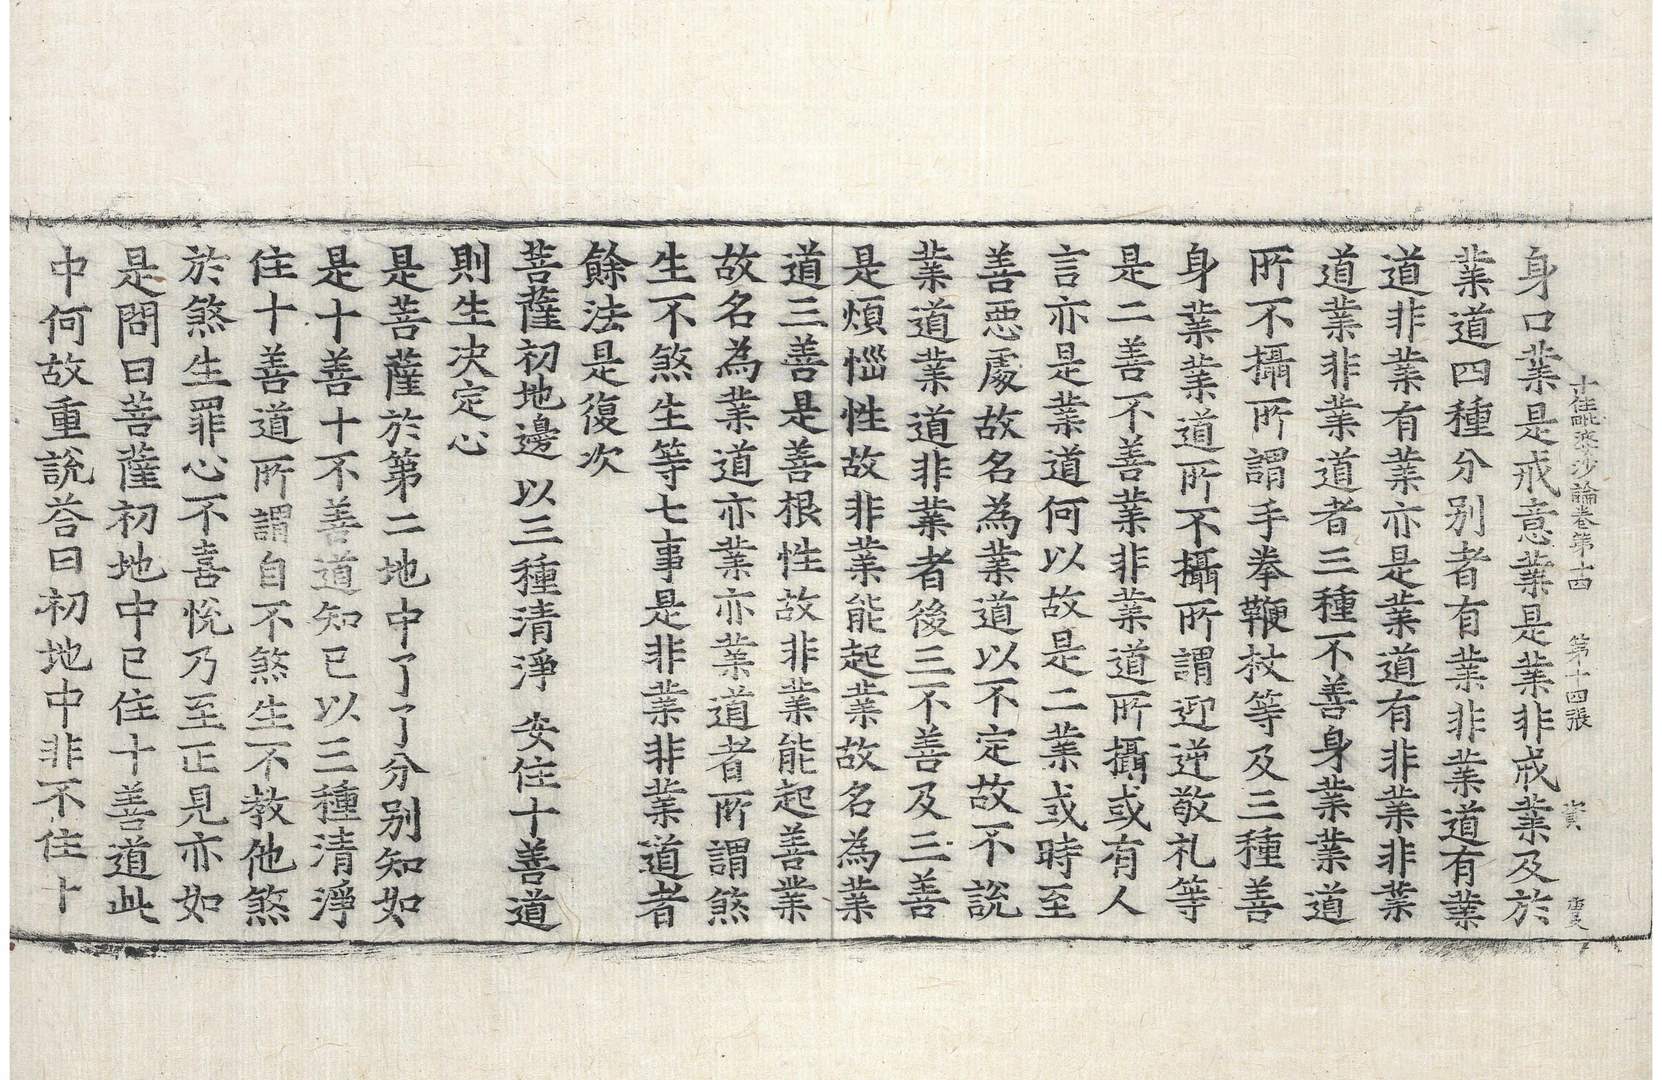 十住毗婆沙論卷第十四 第十四張 賷
身口業是戒意業是業非戒業及於
業道四種分别者有業非業道有業
道非業有業亦是業道有非業非業
道業非業道者三種不善身業業道
所不攝所謂手拳鞭杖等及三種善
身業業道所不攝所謂迎逆敬礼等
是二善不善業非業道所攝或有人
言亦是業道何以故是二業或時至
善惡處故名為業道以不定故不說
業道業道非業者後三不善及三善
是煩惱性故非業能起業故名為業
道三善是善根性故非業能起善業
故名為業道亦業亦業道者所謂煞
生不煞生等七事是非業非業道者
餘法是復次
菩薩初地邊 以三種清淨 安住十善道
則生决定心
是菩薩於第二地中了了分别知如
是十善十不善道知已以三種清淨
住十善道所謂自不煞生不教他煞
於煞生罪心不喜悅乃至正見亦如
是問曰菩薩初地中已住十善道此
中何故重說荅曰初地中非不住十